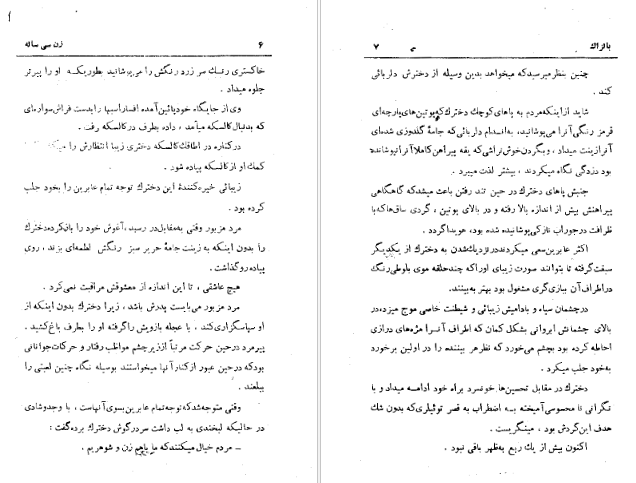 ۶ زن سی ساله
خاکستری رنگ سر زرد رنگش را می‌پوشانید بطوریکه او را پیرتر
جلوه میداد.
وی از جایگاه خود پائین آمده افسار اسبها را بدست فراش سواره‌ای
که بدنبال کالسکه میآمد، داده بطرف در کالسکه رفت.
در کناره در اطاقک کالسکه دختری زیبا انتظارش را میکشید
کمک او از کالسکه پیاده شود.
زیبائی خیره کننده‌ٔ این دخترک توجه تمام عابرین را بخود جلب
کرده بود.
مرد مزبور وقتی به مقابل در رسید، آغوش خود را باز کرده دخترک
را بدون اینکه به زینت جامهٔ حریر سبز رنگش لطمه‌ای بزند، روی
پیاده رو گذاشت.
هیچ عاشقی، تا این اندازه از معشوقش مراقبت نمی‌کرد.
مرد مزبور می‌بایست پدرش باشد، زیرا دخترک بدون اینکه از
او سپاسگزاری کند، با عجله بازویش را گرفته او را بطرف باغ کشید.
پیرمرد در حین حرکت مرتباً از زیر چشم مواظب رفتار و حرکات جوانانی
بود که در حین عبور از کنار آنها میخواستند بوسیله نگاه چنین لعبتی را
ببلعند.
وقتی متوجه شد که توجه تمام عابرین بسوی آنهاست، با وجد و شادی
در حالیکه لبخندی به لب داشت سر در گوش دخترک برده گفت:
- مردم خیال میکنند که ما باهم زن و شوهریم.
بالزاک ۷
چنین بنظر میرسید که میخواهد بدین وسیله از دخترش دلربائی
کند.
شاید از اینکه مردم به پاهای کوچک دخترک که پوتین‌های پارچه‌ای
قرمز رنگی آنرا می‌پوشانید، به اندام دلربائی که جامهٔ گلدوزی شده‌ای
آنرا زینت میداد، و بگردن خوش تراشی که یقه پیراهن کاملا آنرا نپوشانده
بود دزدگی نگاه میکردند، بیشتر لذت میبرد.
جنبش پاهای دخترک در حین تند رفتن باعث میشد که گاهگاهی
پیراهنش بیش از اندازه بالا رفته و در بالای پوتین، گردی ساق‌ها که با
ظرافت در جوراب نازکی پوشانیده شده بود، هویدا گردد.
اکثر عابرین سعی میکردند در نزدیک شدن به دخترک از یکدیگر
سبقت گرفته تا بتوانند صورت زیبای او را که چند حلقه موی بلوطی رنگ
در اطراف آن ببازی‌گری مشغول بود بهتر به‌بینند.
در چشمان سیاه و بادامیش زیبائی و شیطنت خاصی موج میزد، در
بالای چشمانش ابروانی بشکل کمان که اطراف آنرا مژه‌های درازی
احاطه کرده بود بچشم می‌خورد که نظر هر بیننده را در اولین برخورد
بخود جلب میکرد.
دخترک در مقابل تحسین‌ها، خونسرد براه خود ادامه میداد و با
نگرانی نا محسوسی آمیخته به اضطراب به قصر توئیلری که بدون شک
هدف این گردش بود، مینگریست.
اکنون بیش از یک ربع به ظهر باقی نبود.